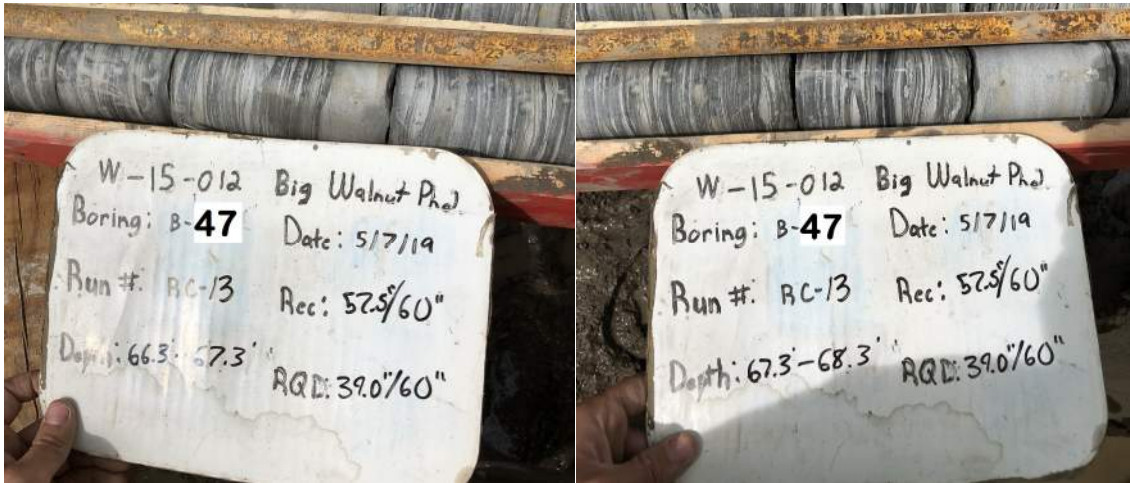 W-15-012 Big Walnut Ph2
Boring: B-47 Date: 5/7/19
Run #: RC-13 Rec: 57.5"/60"
Depth: 66.3'-67.3' RQD: 39.0"/60"
W-15-012 Big Walnut Ph2
Boring: B-47 Date: 5/7/19
Run #: RC-13 Rec: 57.5"/60"
Depth: 67.3'-68.3' RQD: 39.0"/60"